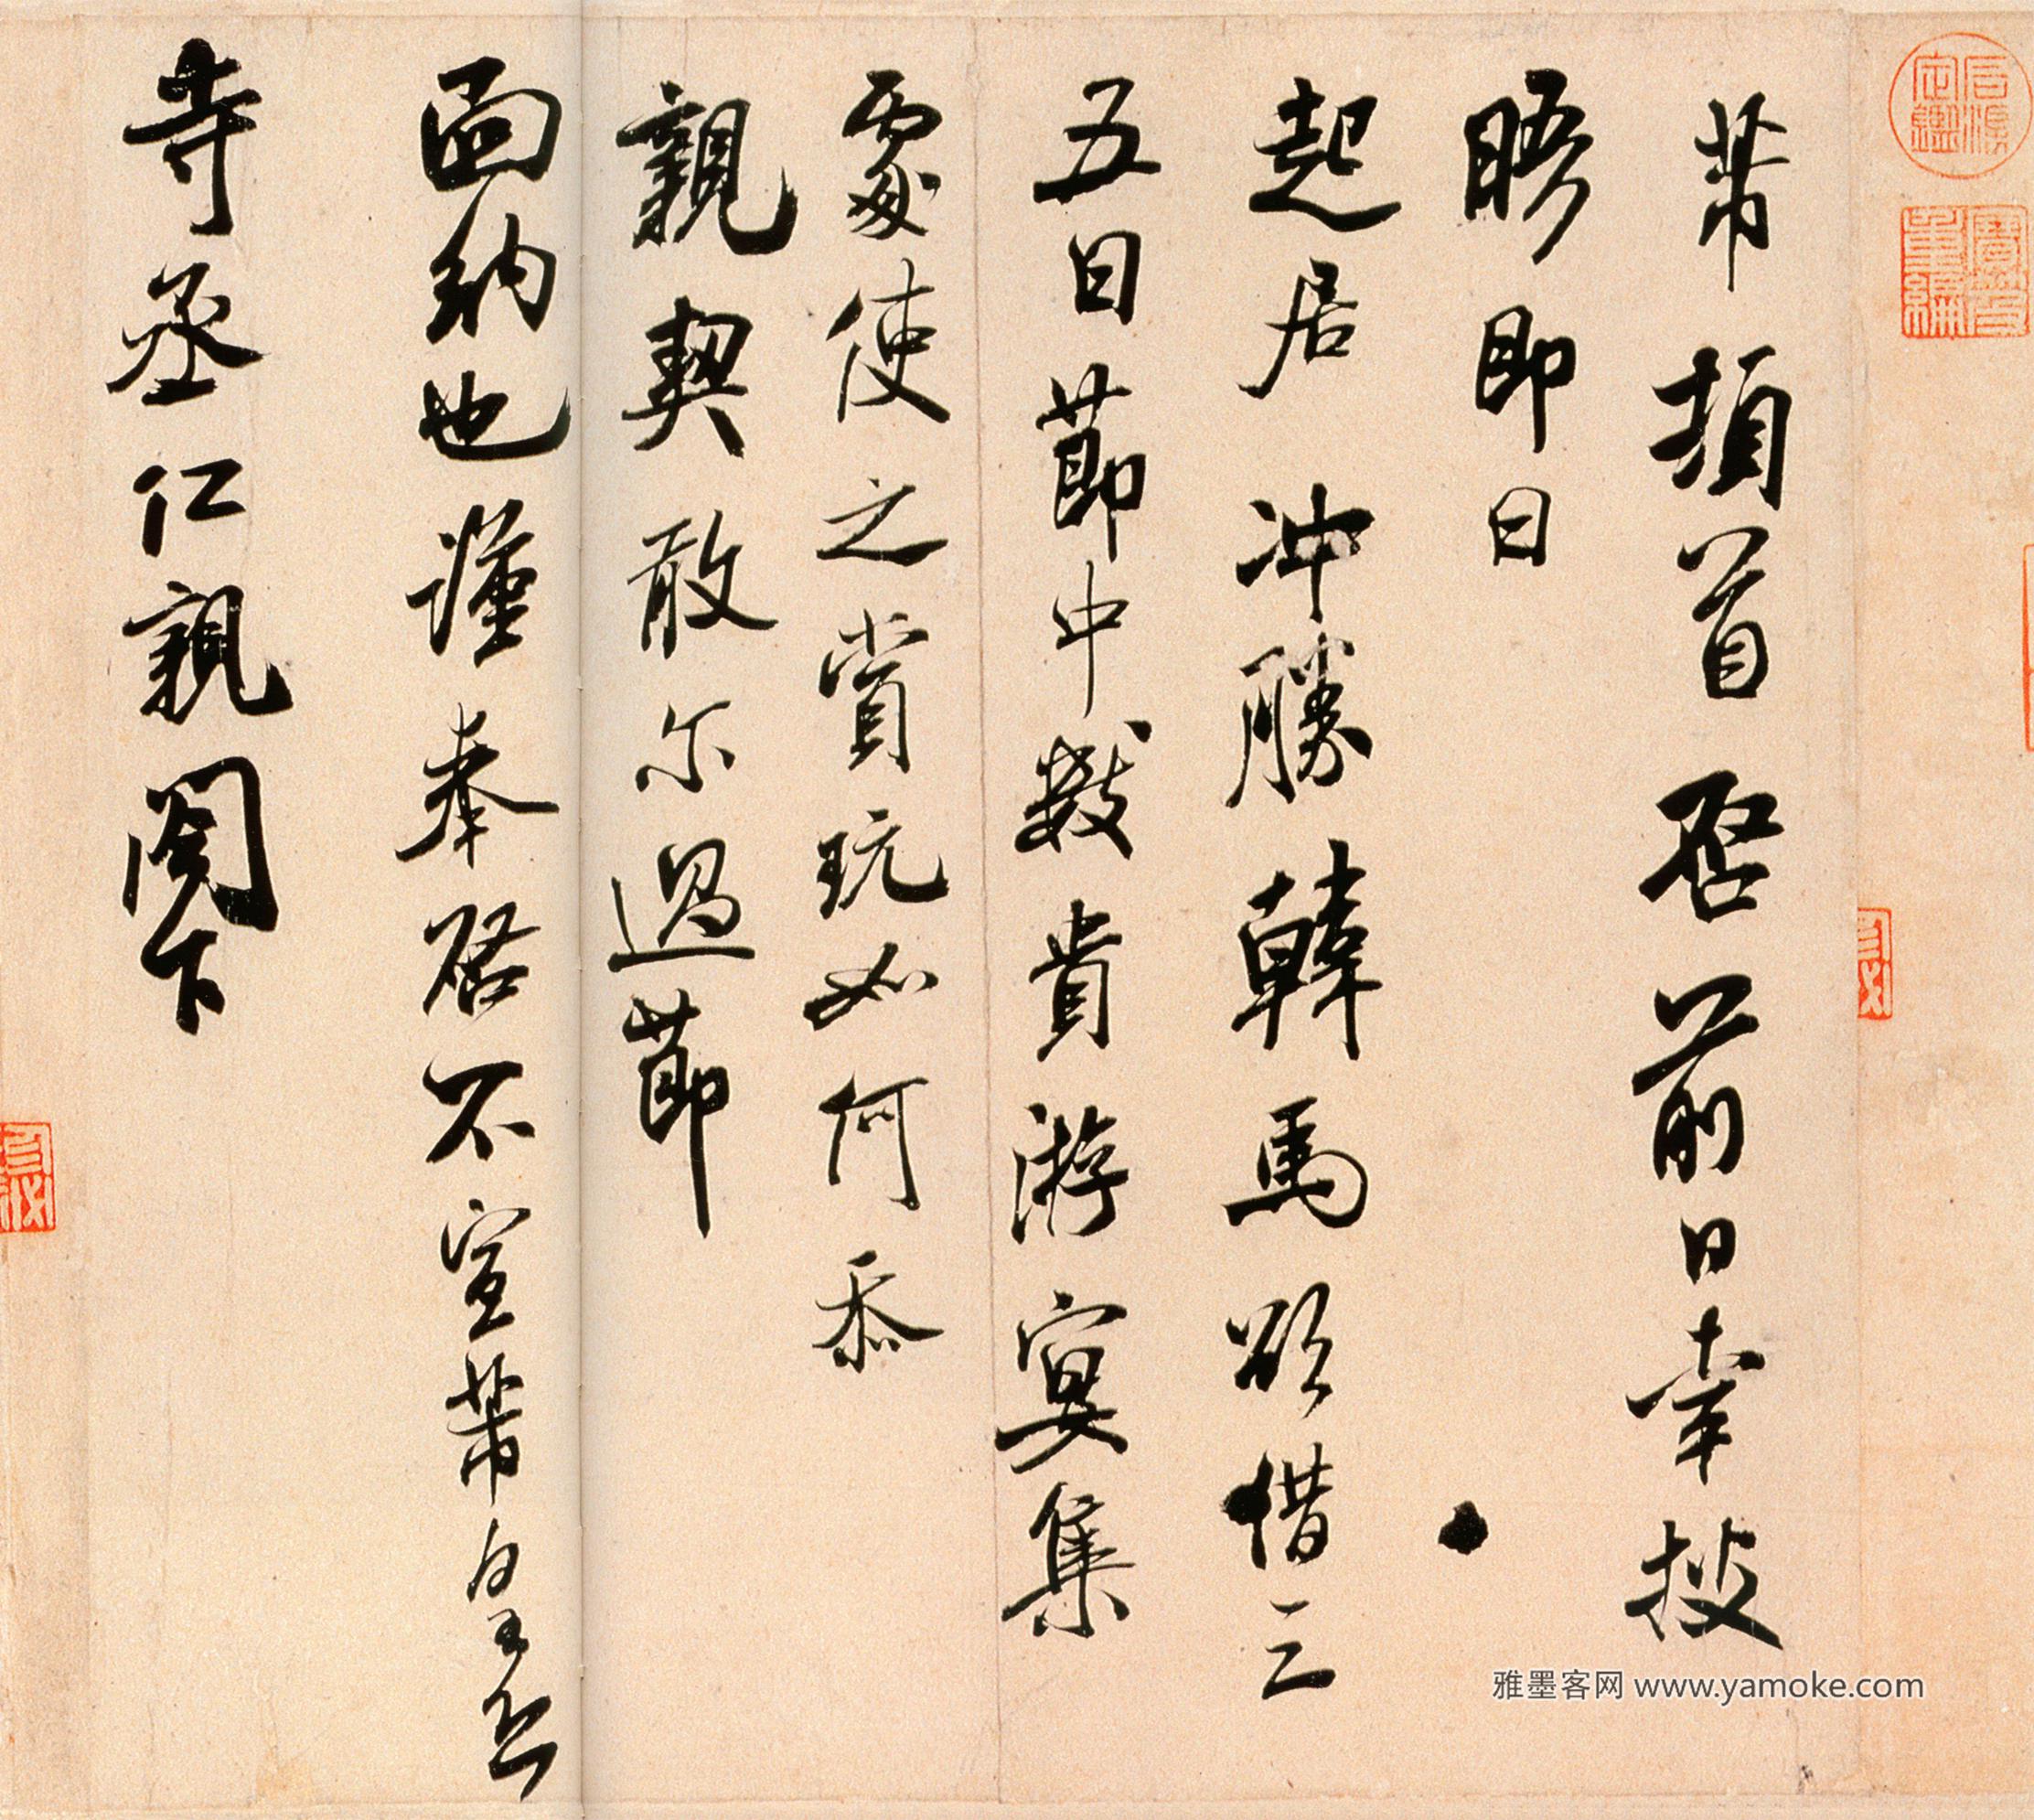 芾頓首啓前日幸披
晤即日
起居沖勝韓馬欲借三
五日節中數貴游宴集
處使之賞玩如何忝
親契敢尔過節
面納也謹奉啓不宣芾皇恐
寺丞仁親閣下
雅墨客网 www.yamoke.com